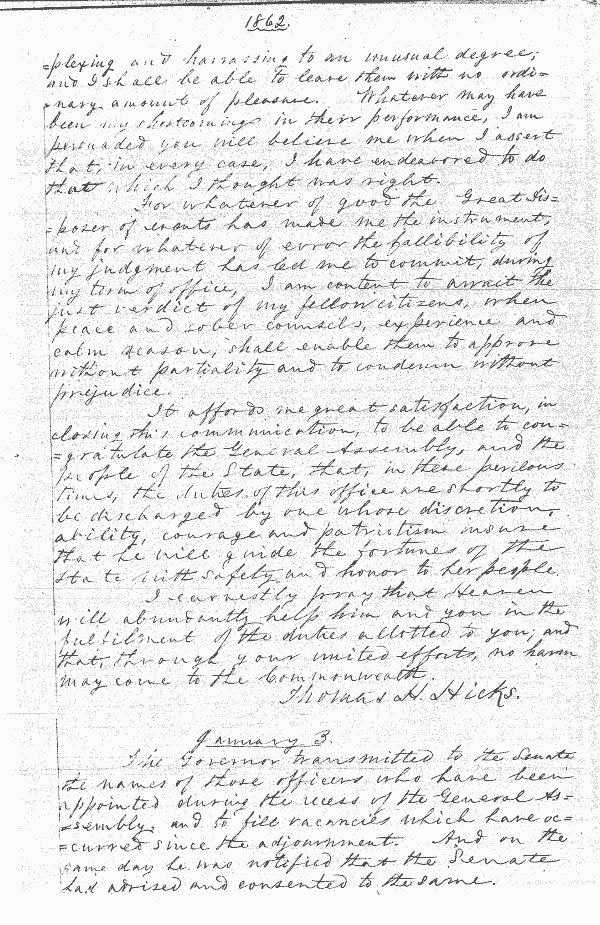 1862.
=plexing and harrassing to an unusual degree;
and I shall be able to leave them with no ordi=
=nary amount of pleasure. Whatever may have
been my shortcomings in their performance, I am
persuaded you will believe me when I assert
that, in every case, I have endeavored to do
that which I thought was right.
For whatever of good the Great Dis=
=poser of events has made me the instrument,
and for whatever of error the fallibility of
my judgment has led me to commit, during
my term of office, I am content to await the
just verdict of my fellow citizens, when
peace and sober counsels, experience and
calm reason, shall enable them to approve
without partiality and to condemn without
prejudice.
It affords me great satisfaction, in
closing this communication, to be able to con=
=gratulate the General Assembly, and the
people of the State, that, in these perilous
times, the duties of this office are shortly to
be discharged by one whose discretion,
ability, courage and patriotism insure
that he will guide the fortunes of the
State with safety and honor to her people.
I earnestly pray that Heaven
will abundantly help him and you in the
fulfilment of the duties allotted to you, and
that, through your united efforts, no harm
may come to the Commonwealth.
Thomas H. Hicks.
January 3.
The Governor transmitted to the Senate
the names of those officers who have been
appointed during the recess of the General As=
=sembly, and to fill vacancies which have oc=
=curred since the adjournment. And on the
same day he was notified that the Senate
had advised and consented to the same.